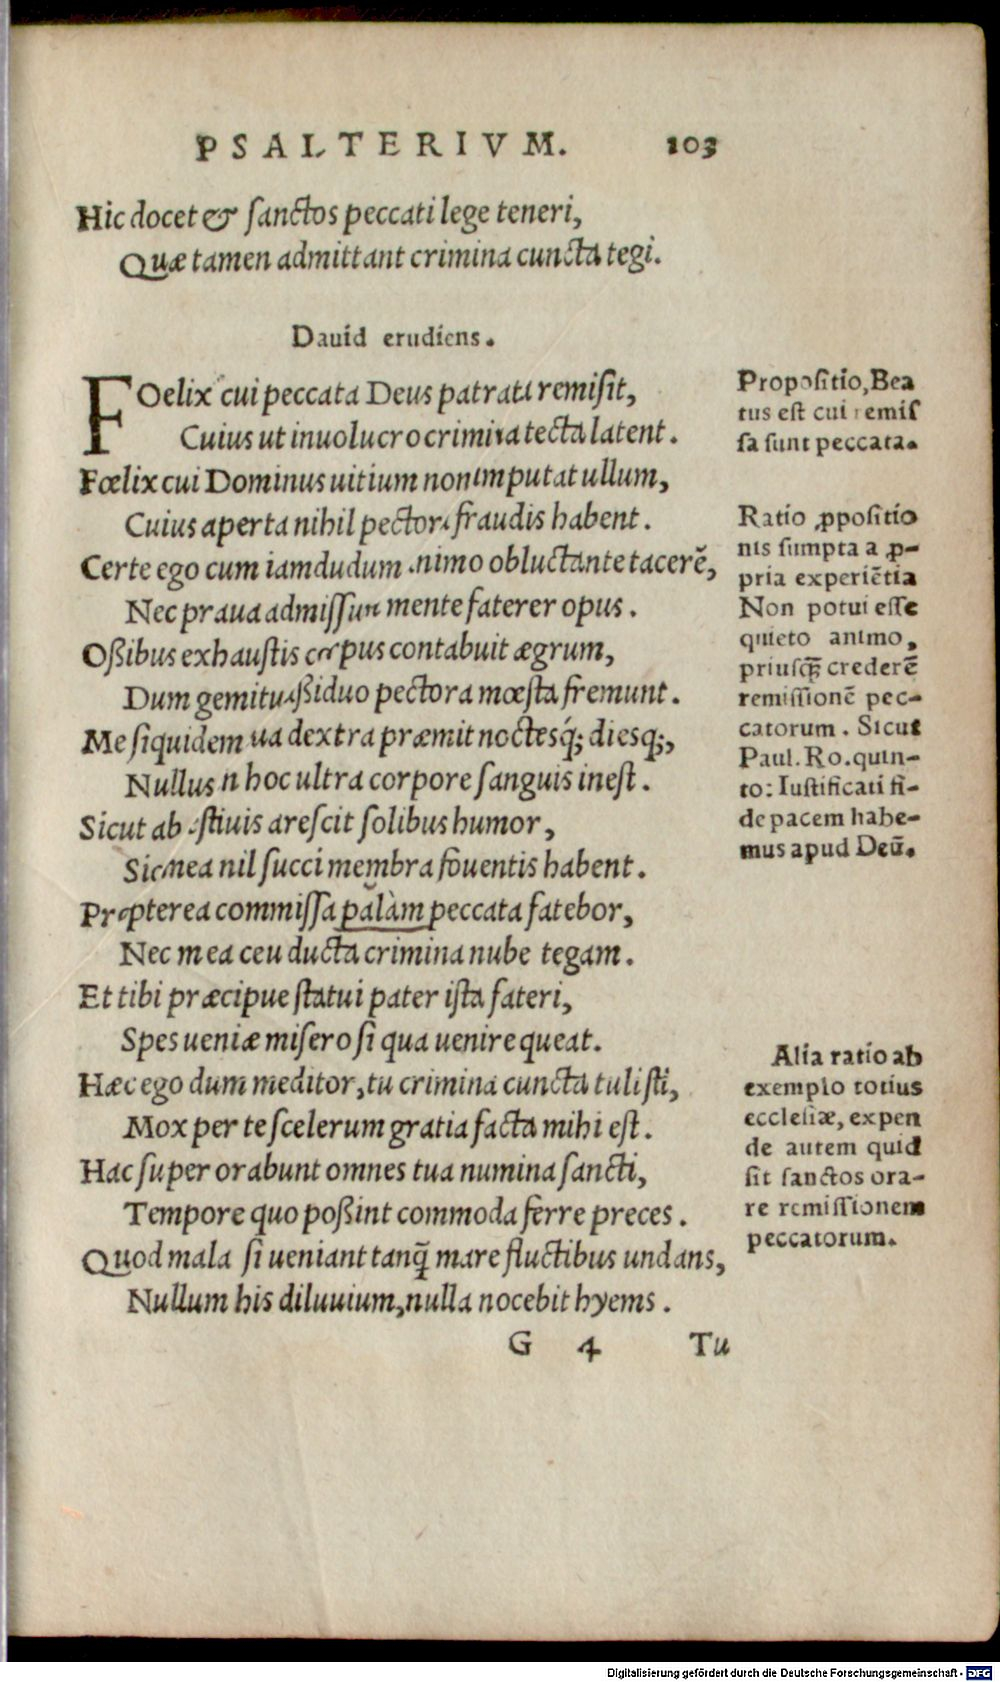 PSALTERIVM. 103
Hic docet & sanctos peccati lege teneri,
Quæ tamen admittant crimina cuncta tegi.
Dauid erudiens.
FOelix cui peccata Deus patrata remisit,
Cuius ut inuolucro crimina tecta latent.
Fœlix cui Dominus uitium non imputat ullum,
Cuius aperta nihil pectora fraudis habent.
Certe ego cum iamdudum animo obluctante tacerē,
Nec praua admissum mente faterer opus.
Oßibus exhaustis corpus contabuit ægrum,
Dum gemitu aßiduo pectora mœsta fremunt.
Me siquidem tua dextra præmit noctesq́; diesq;,
Nullus in hoc ultra corpore sanguis inest.
Sicut ab æstiuis arescit solibus humor,
Sic mea nil succi membra fouentis habent.
Propterea commissa palàm peccata fatebor,
Nec mea ceu ducta crimina nube tegam.
Et tibi præcipue statui pater ista fateri,
Spes ueniæ misero si qua uenire queat.
Hæc ego dum meditor, tu crimina cuncta tulisti,
Mox per te scelerum gratia facta mihi est.
Hac super orabunt omnes tua numina sancti,
Tempore quo poßint commoda ferre preces.
Quod mala si ueniant tanq̄ mare fluctibus undans,
Nullum his diluuium, nulla nocebit hyems.
G 4 Tu
Propositio, Bea
tus est cui remis
sa sunt peccata.
Ratio ꝓpositio
nis sumpta a ꝓ-
pria experiētia
Non potui esse
quieto animo,
priusq̄ crederē
remissionē pec-
catorum. Sicut
Paul. Ro. quin-
to: Iustificati fi-
de pacem habe-
mus apud Deū.
Alia ratio ab
exemplo totius
ecclesiæ, expen
de autem quid
sit sanctos ora-
re remissionem
peccatorum.
Digitalisierung gefördert durch die Deutsche Forschungsgemeinschaft - DFG